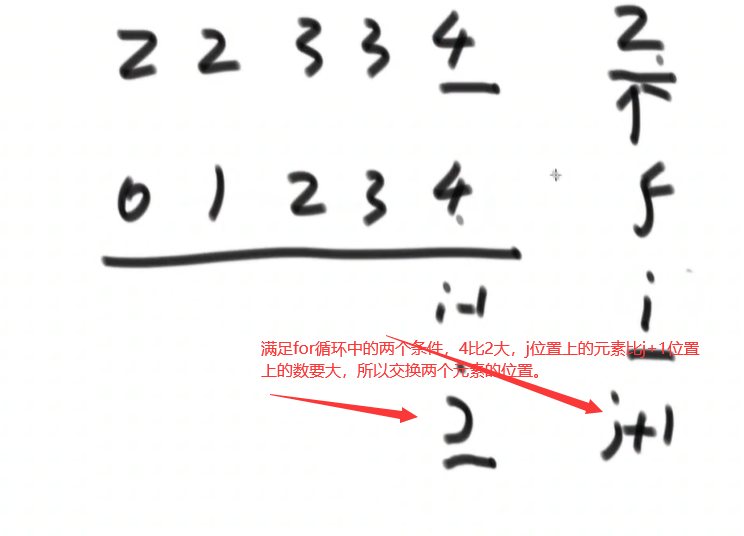 2 2 3 3 4 2
0 1 2 3 4 5
i-1 i
满足for循环中的两个条件，4比2大，j位置上的元素比j+1位置
上的数要大，所以交换两个元素的位置。
j+1